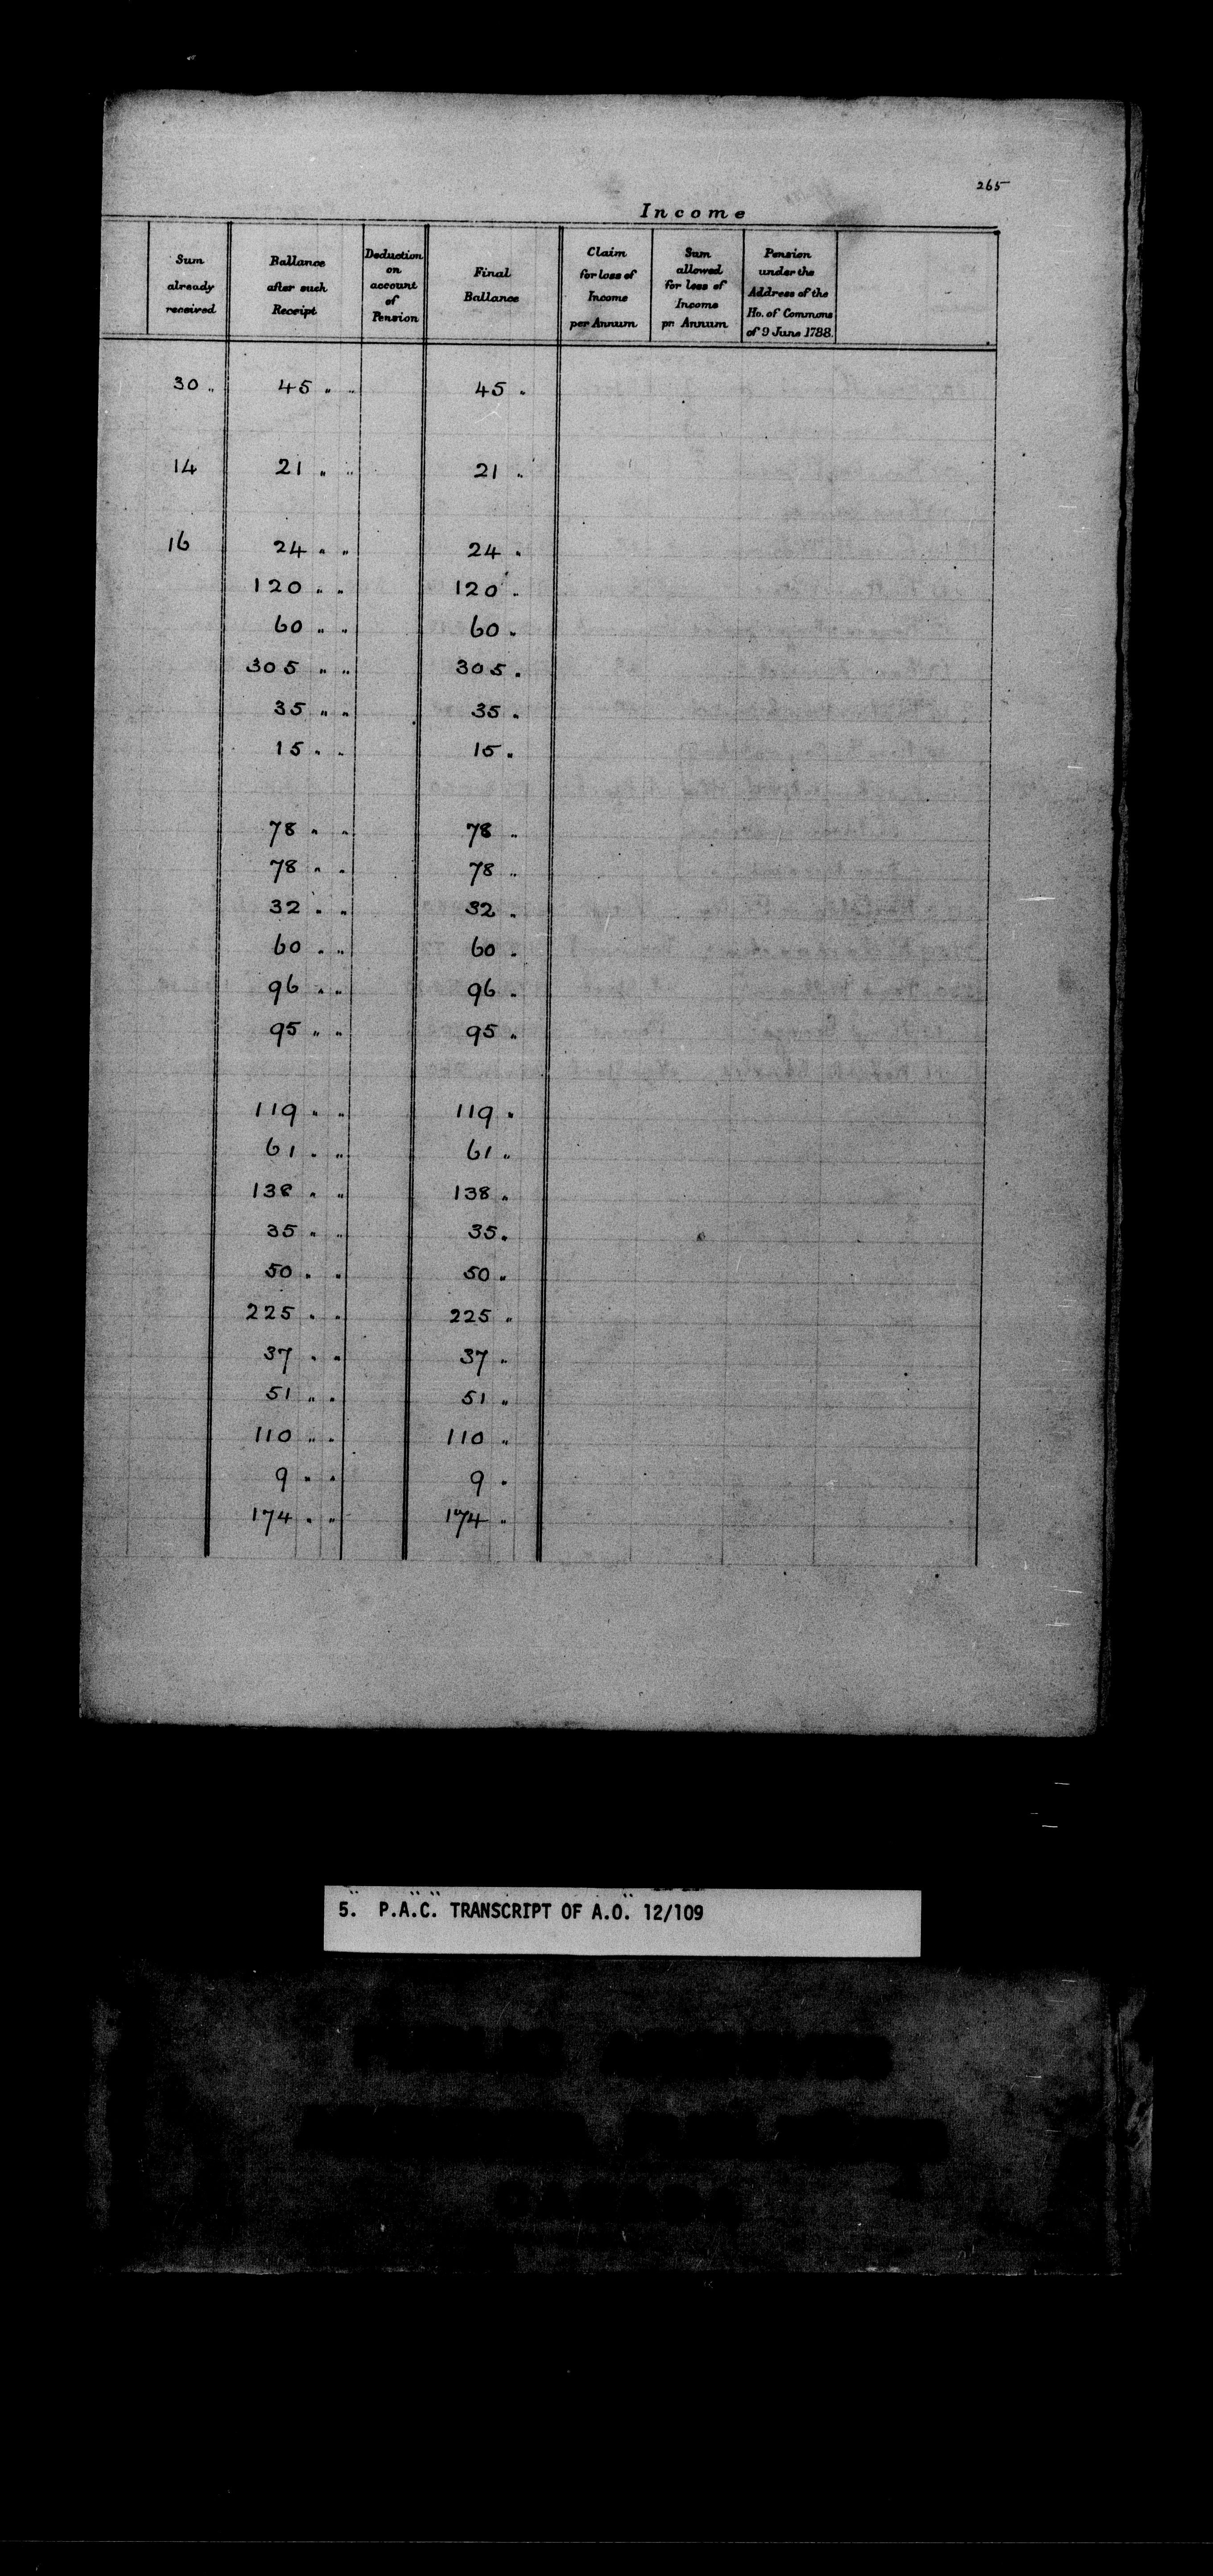 265
Income
Sum already received
Ballance after such Receipt
Deduction on account of Pension
Final Ballance
Claim for loss of Income per Annum
Sum allowed for loss of Income pr Annum
Pension under the Address of the Ho. of Commons of 9 June 1788
30 " 45 " " 45 "
14 21 " " 21 "
16 24 " " 24 "
120 " " 120 "
60 " " 60 "
305 " " 305 "
35 " " 35 "
15 " " 15 "
78 " " 78 "
78 " " 78 "
32 " " 32 "
60 " " 60 "
96 " " 96 "
95 " " 95 "
119 " " 119 "
61 " " 61 "
138 " " 138 "
35 " " 35 "
50 " " 50 "
225 " " 225 "
37 " " 37 "
51 " " 51 "
110 " " 110 "
9 " " 9 "
174 " " 174 "
5. P.A.C. TRANSCRIPT OF A.O. 12/109